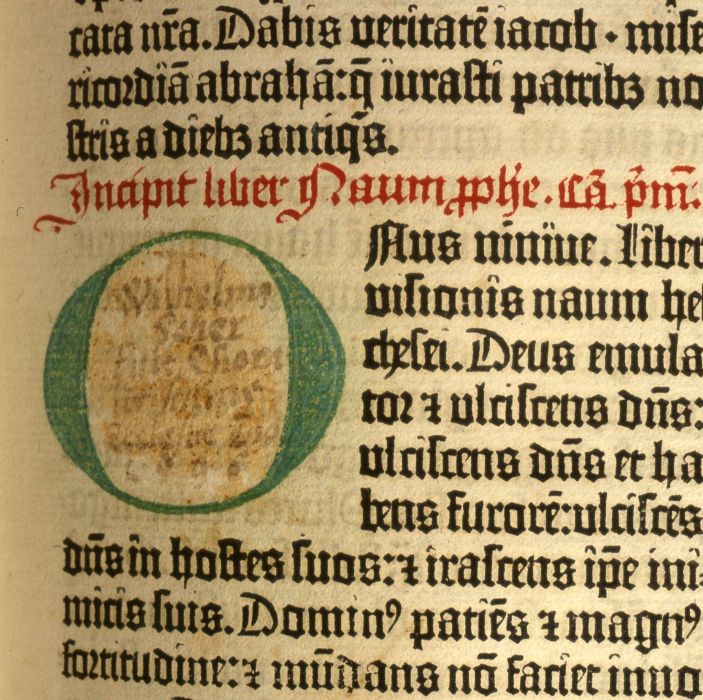 rata nr̃a. Dabis veritatē iacob · mise
ricordiā abrahā: q̄ iurasti patribꝫ no
stris a diebꝫ antiqͥs.
Incipit liber Naum ꝓph̃e. Cã. pͥm̃:
O
Nus niniue. Liber
visionis naum hel
chesei. Deus emula
tor ⁊ ulciscens dñs:
ulciscens dñs et ha
bens furorē: ulciscēs
dñs in hostes suos: ⁊ irascens ip̃e ini
micis suis. Dominꝰ patiēs ⁊ magnꝰ
fortitudine: ⁊ mūdans nō faciet inno
Wilhelmus